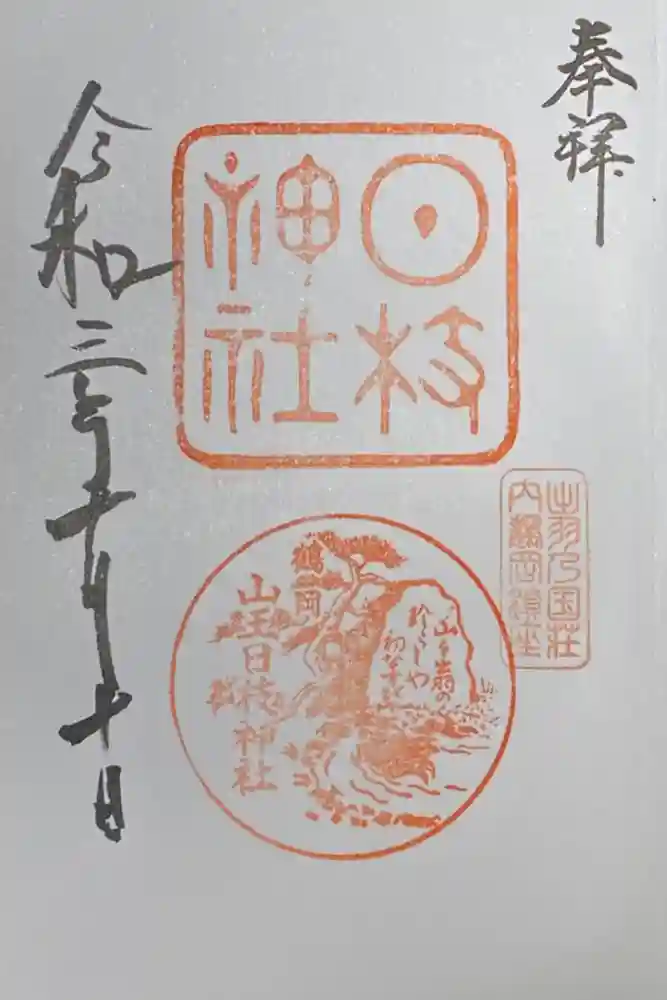 奉拝
日枝
神社
出羽乃国荘
内鶴岡鎮座
山を出羽の
めづらしや
鶴岡
山王日枝神社
令和三年十月十日